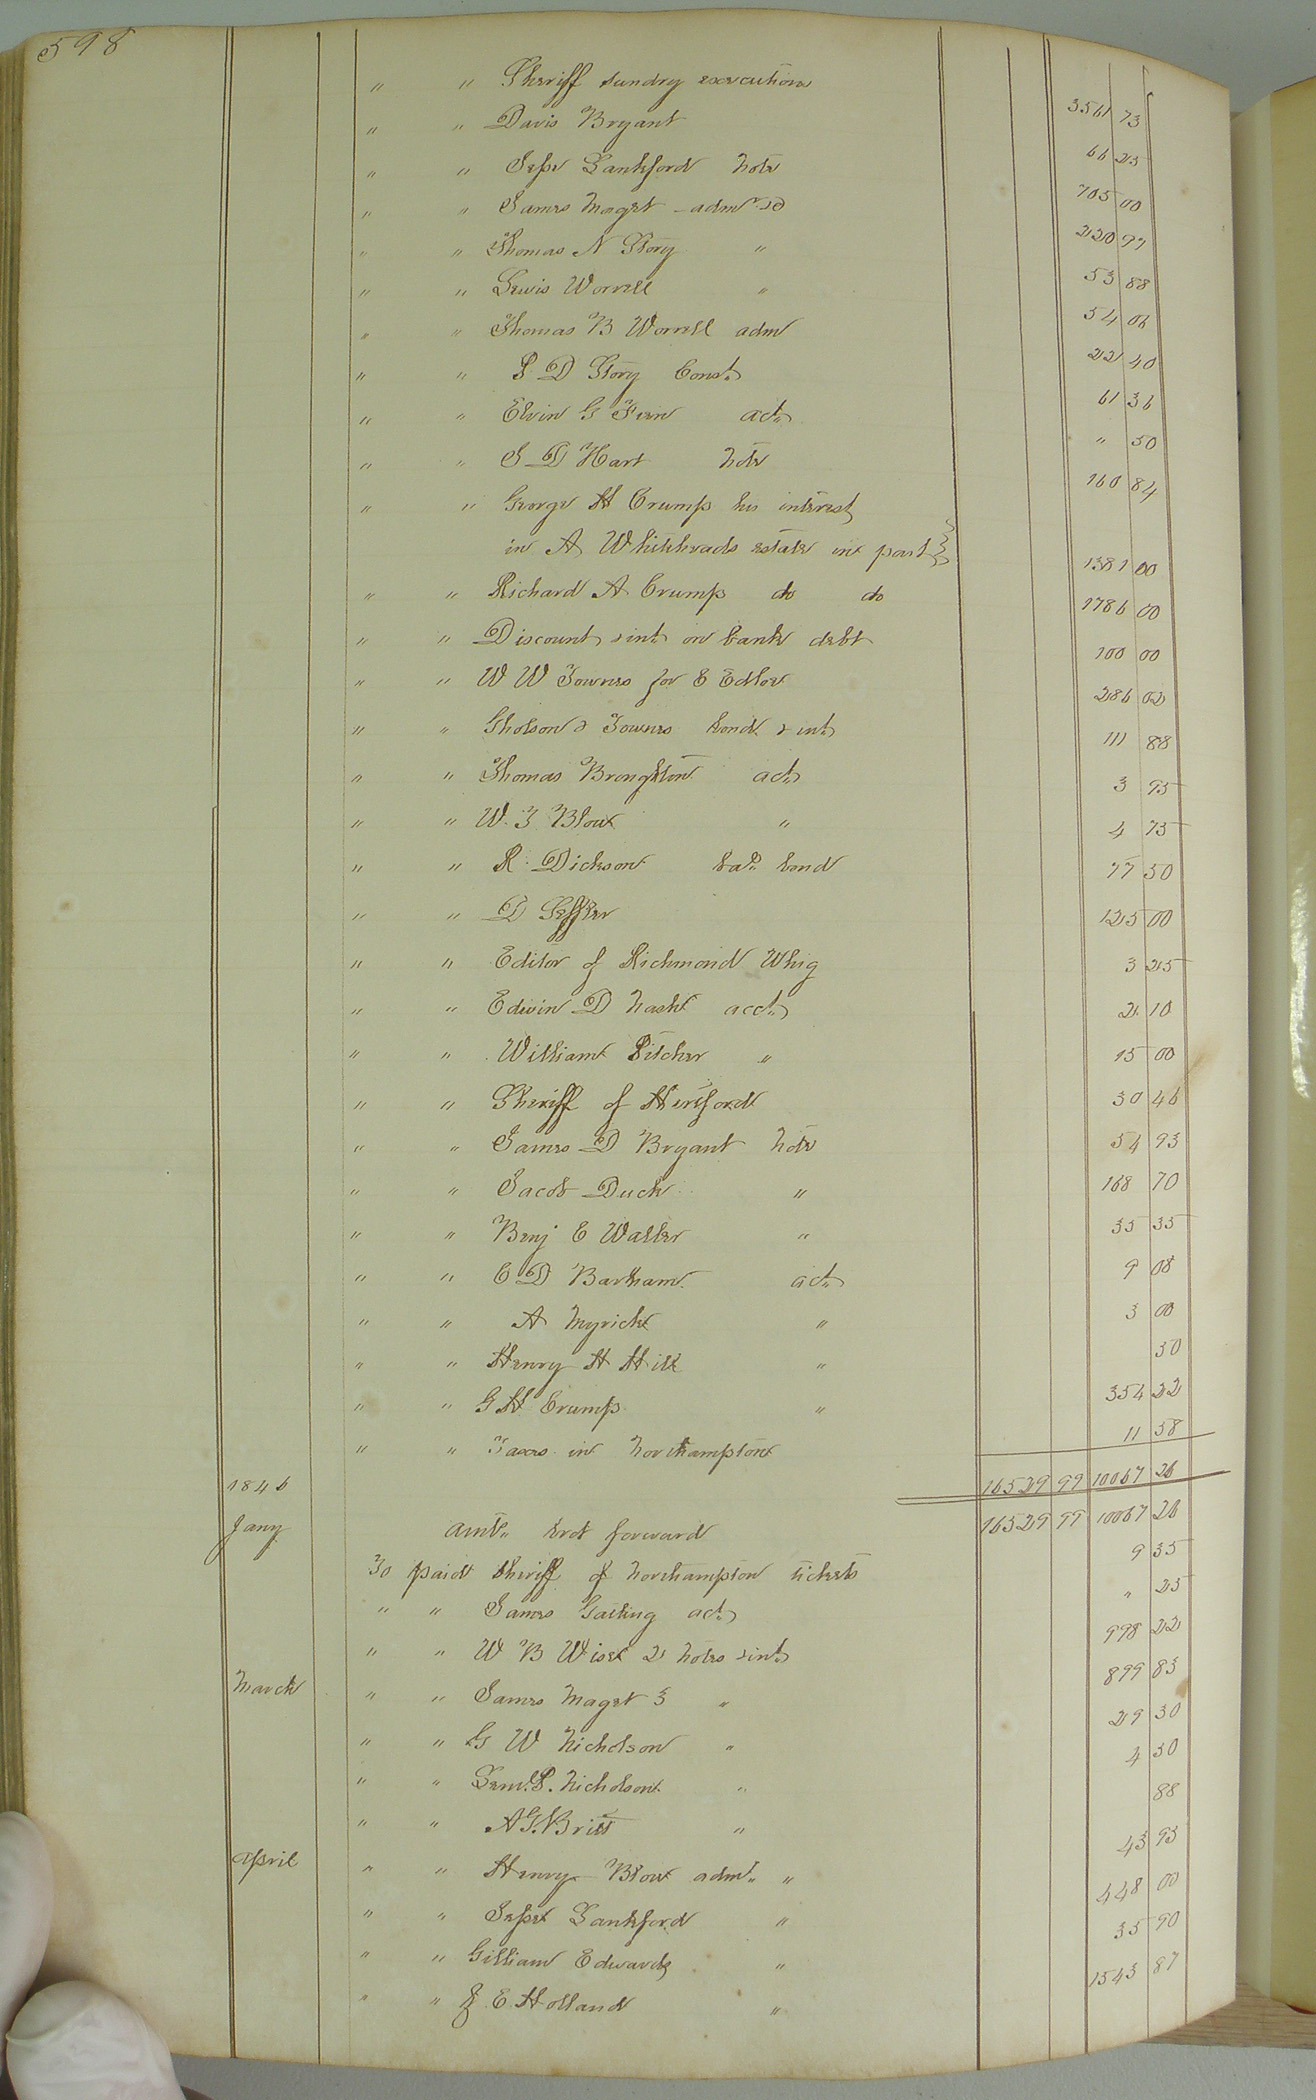 598
" " Sheriff sundry executions 3561 73
" " Davis Bryant 66 25
" " Jesse Lankford note 705 00
" " James Maget adm 220 97
" " Thomas N Story " 53 88
" " Lewis Worrell " 54 06
" " Thomas B Worrell adm 22 40
" " S D Story Const. 61 36
" " Elvin G Fenn act. " 50
" " S D Hart note 160 84
" " George H Crump his interest
in A Whiteheads estate in part 1381 00
" " Richard A Crump do do 1786 00
" " Discount & int. on bank debt 100 00
" " W W Townes for E Edloe 286 02
" " Gholson & Townes bond & int. 111 88
" " Thomas Broughton act. 3 95
" " W. T Blow " 4 75
" " R. Dickson bond 77 50
" " D 125 00
" " Editor of Richmond Whig 3 25
" " Edwin D Nash acct. 2 10
" " William Pitcher " 15 00
" " Sheriff of Hertford 30 46
" " James D Bryant note 54 93
" " Jacob Duck " 168 70
" " Benj E Waller " 35 35
" " C D Barham act. 9 08
" " A Myrick " 3 00
" " Henry H Hill " 50
" " G H Crump " 354 22
" " Taxes in Northampton 11 58
1846 16529 99 10067 26
Jany amt. brot forward 16529 99 10067 26
To paid Sheriff of Northampton tickets 9 35
" " James Gatling act. " 25
" " W B Wise 2 notes & int. 998 22
March " " James Maget 3 " 899 83
" " G W Nicholson " 29 30
" " Saml. P. Nicholson " 4 50
" " A G. Britt " 88
April " " Henry Blow adm. " 43 93
" " Jesse Lankford " 448 00
" " Gilliam Edwards " 35 90
" " J. E. Holland " 1543 87